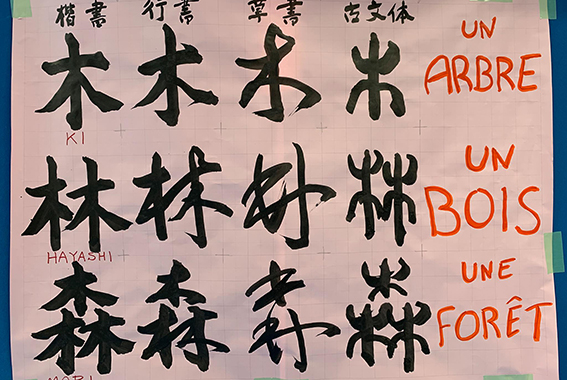 楷書 行書 草書 古文体
木 木 木 木 UN ARBRE
KI
林 林 林 林 UN BOIS
HAYASHI
森 森 森 森 UNE FORÊT
MORI